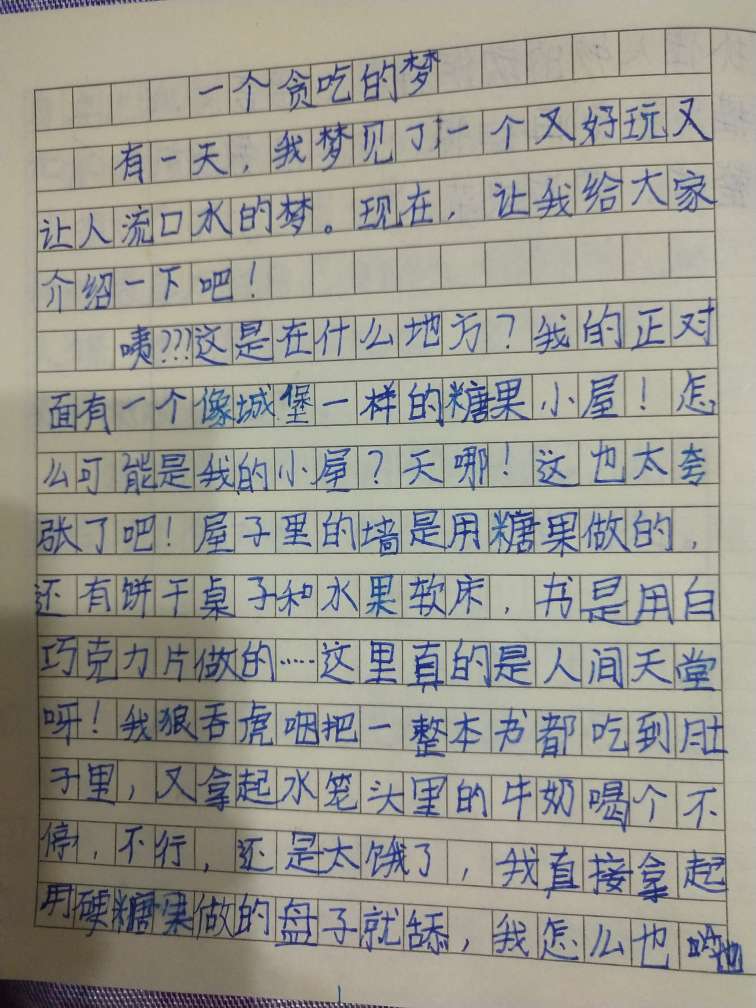 一个贪吃的梦
有一天，我梦见了一个又好玩又
让人流口水的梦。现在，让我给大家
介绍一下吧！
咦???这是在什么地方？我的正对
面有一个像城堡一样的糖果小屋！怎
么可能是我的小屋？天哪！这也太夸
张了吧！屋子里的墙是用糖果做的，
还有饼干桌子和水果软床，书是用白
巧克力片做的……这里真的是人间天堂
呀！我狼吞虎咽把一整本书都吃到肚
子里，又拿起水笼头里的牛奶喝个不
停，不行，还是太饿了，我直接拿起
用硬糖果做的盘子就舔，我怎么也